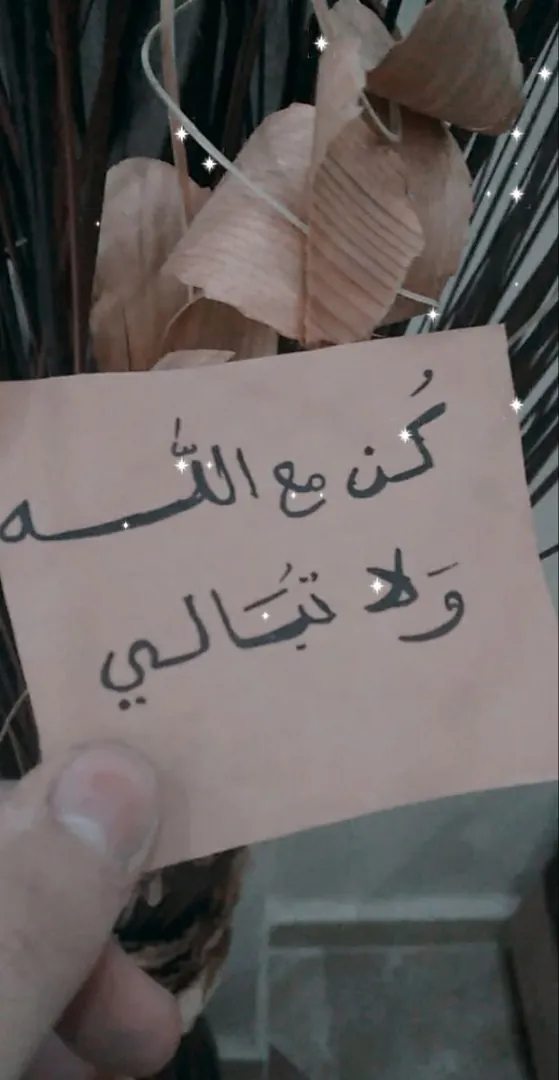 كُن مع اللّٰه
وَلا تُبَالي